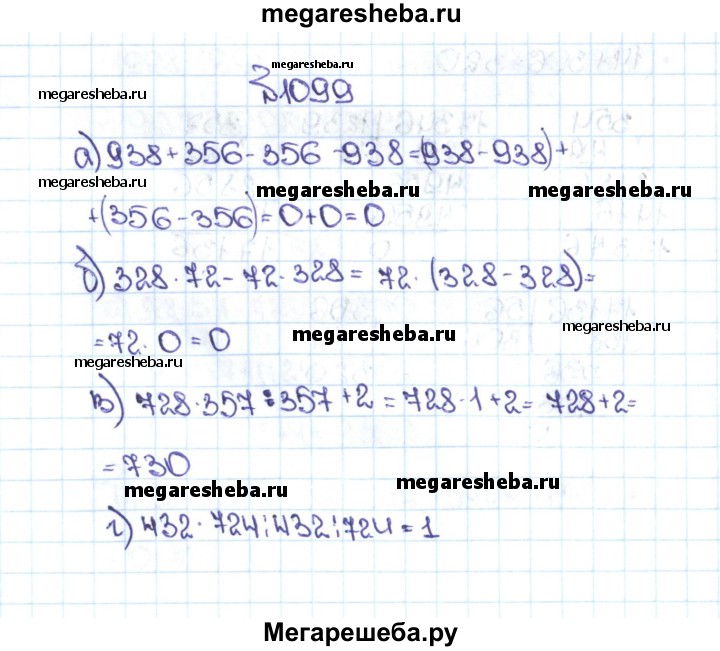 megaresheba.ru
megaresheba.ru
№1099
megaresheba.ru
а) 938 + 356 - 356 - 938 = (938 - 938) +
megaresheba.ru megaresheba.ru megaresheba.ru
+ (356 - 356) = 0 + 0 = 0
б) 328 · 72 - 72 · 328 = 72 · (328 - 328) =
megaresheba.ru megaresheba.ru
= 72 · 0 = 0
megaresheba.ru
в) 728 · 357 : 357 + 2 = 728 · 1 + 2 = 728 + 2 =
= 730
megaresheba.ru megaresheba.ru
г) 432 · 724 : 432 : 724 = 1
Мегарешеба.ру